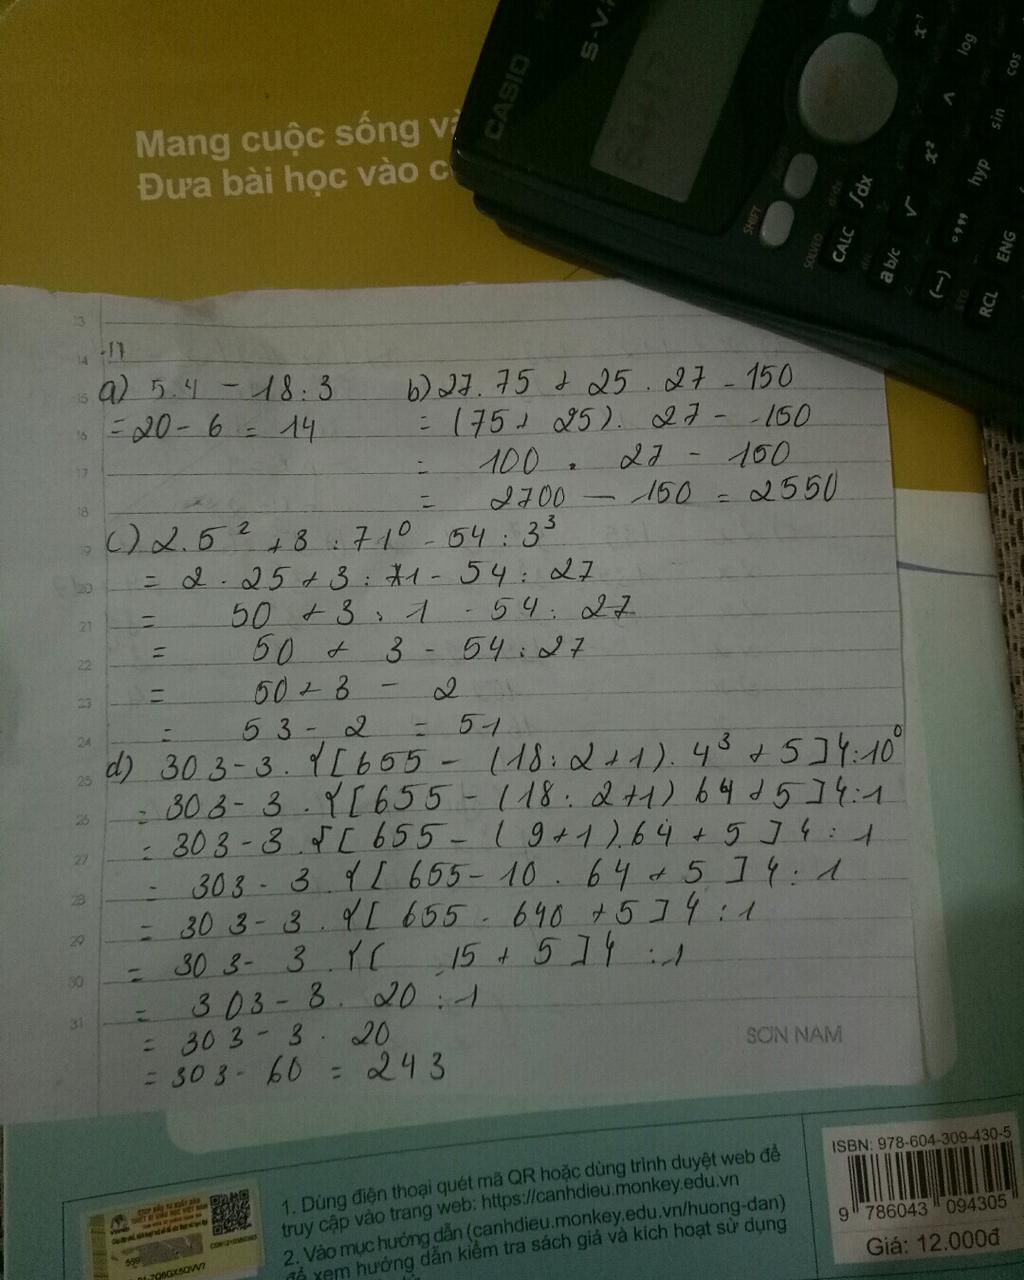 Mang cuộc sống và
Đưa bài học vào c
CASIO
S-V.
SHIFT
SOLVED
CALC
∫dx
x⁻¹
a b/c
√
x²
^
log
(—)
°,,,
hyp
sin
cos
STO
RCL
ENG
13
14
15
16
17
18
19
20
21
22
23
24
25
26
27
28
29
30
31
a) 5.4 - 18:3
= 20 - 6 = 14
b) 27.75 + 25.27 - 150
= (75 + 25). 27 - 150
= 100 . 27 - 150
= 2700 - 150 = 2550
c) 2.5² + 3 : 71⁰ - 54 : 3³
= 2 . 25 + 3 : 1 - 54 : 27
= 50 + 3 : 1 - 54 : 27
= 50 + 3 - 54 : 27
= 50 + 3 - 2
= 53 - 2 = 51
d) 303 - 3 . {[655 - (18:2+1). 4³ + 5]}:10⁰
= 303 - 3 . {[655 - (18:2+1) 64 + 5]}:1
= 303 - 3 . {[655 - (9+1).64 + 5]} : 1
= 303 - 3 . {[655 - 10 . 64 + 5]} : 1
= 303 - 3 . {[655 - 640 + 5]} : 1
= 303 - 3 . {[15 + 5]} : 1
= 303 - 3 . 20 : 1
= 303 - 3 . 20
= 303 - 60 = 243
SƠN NAM
1. Dùng điện thoại quét mã QR hoặc dùng trình duyệt web để
truy cập vào trang web: https://canhdieu.monkey.edu.vn
2. Vào mục hướng dẫn (canhdieu.monkey.edu.vn/huong-dan)
để xem hướng dẫn kiểm tra sách giả và kích hoạt sử dụng
ISBN: 978-604-309-430-5
9 786043 094305
Giá: 12.000đ